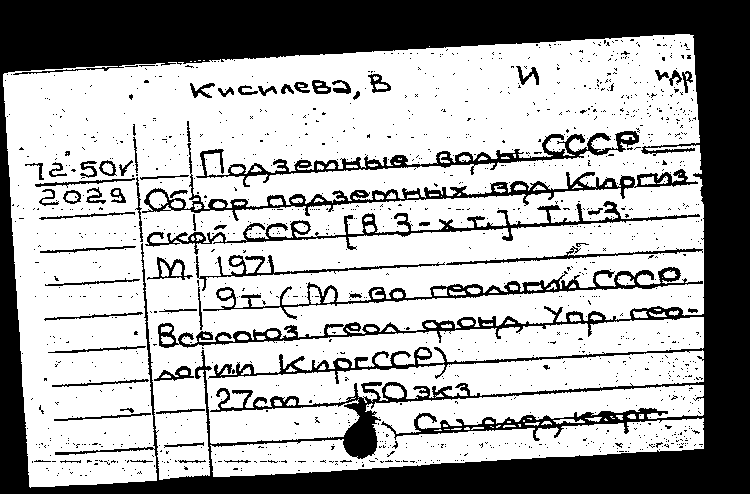 Кисилева, В И и др
72:50V Подземные воды СССР.
2029 Обзор подземных вод Киргиз-
ской ССР. [В 3-х т.]. Т. 1-3.
М., 1971
9т. (М-во геологии СССР.
Всесоюз. геол. фонд, Упр. гео-
логии Кирг.ССР)
27см. 150 экз.
См. след. карт.